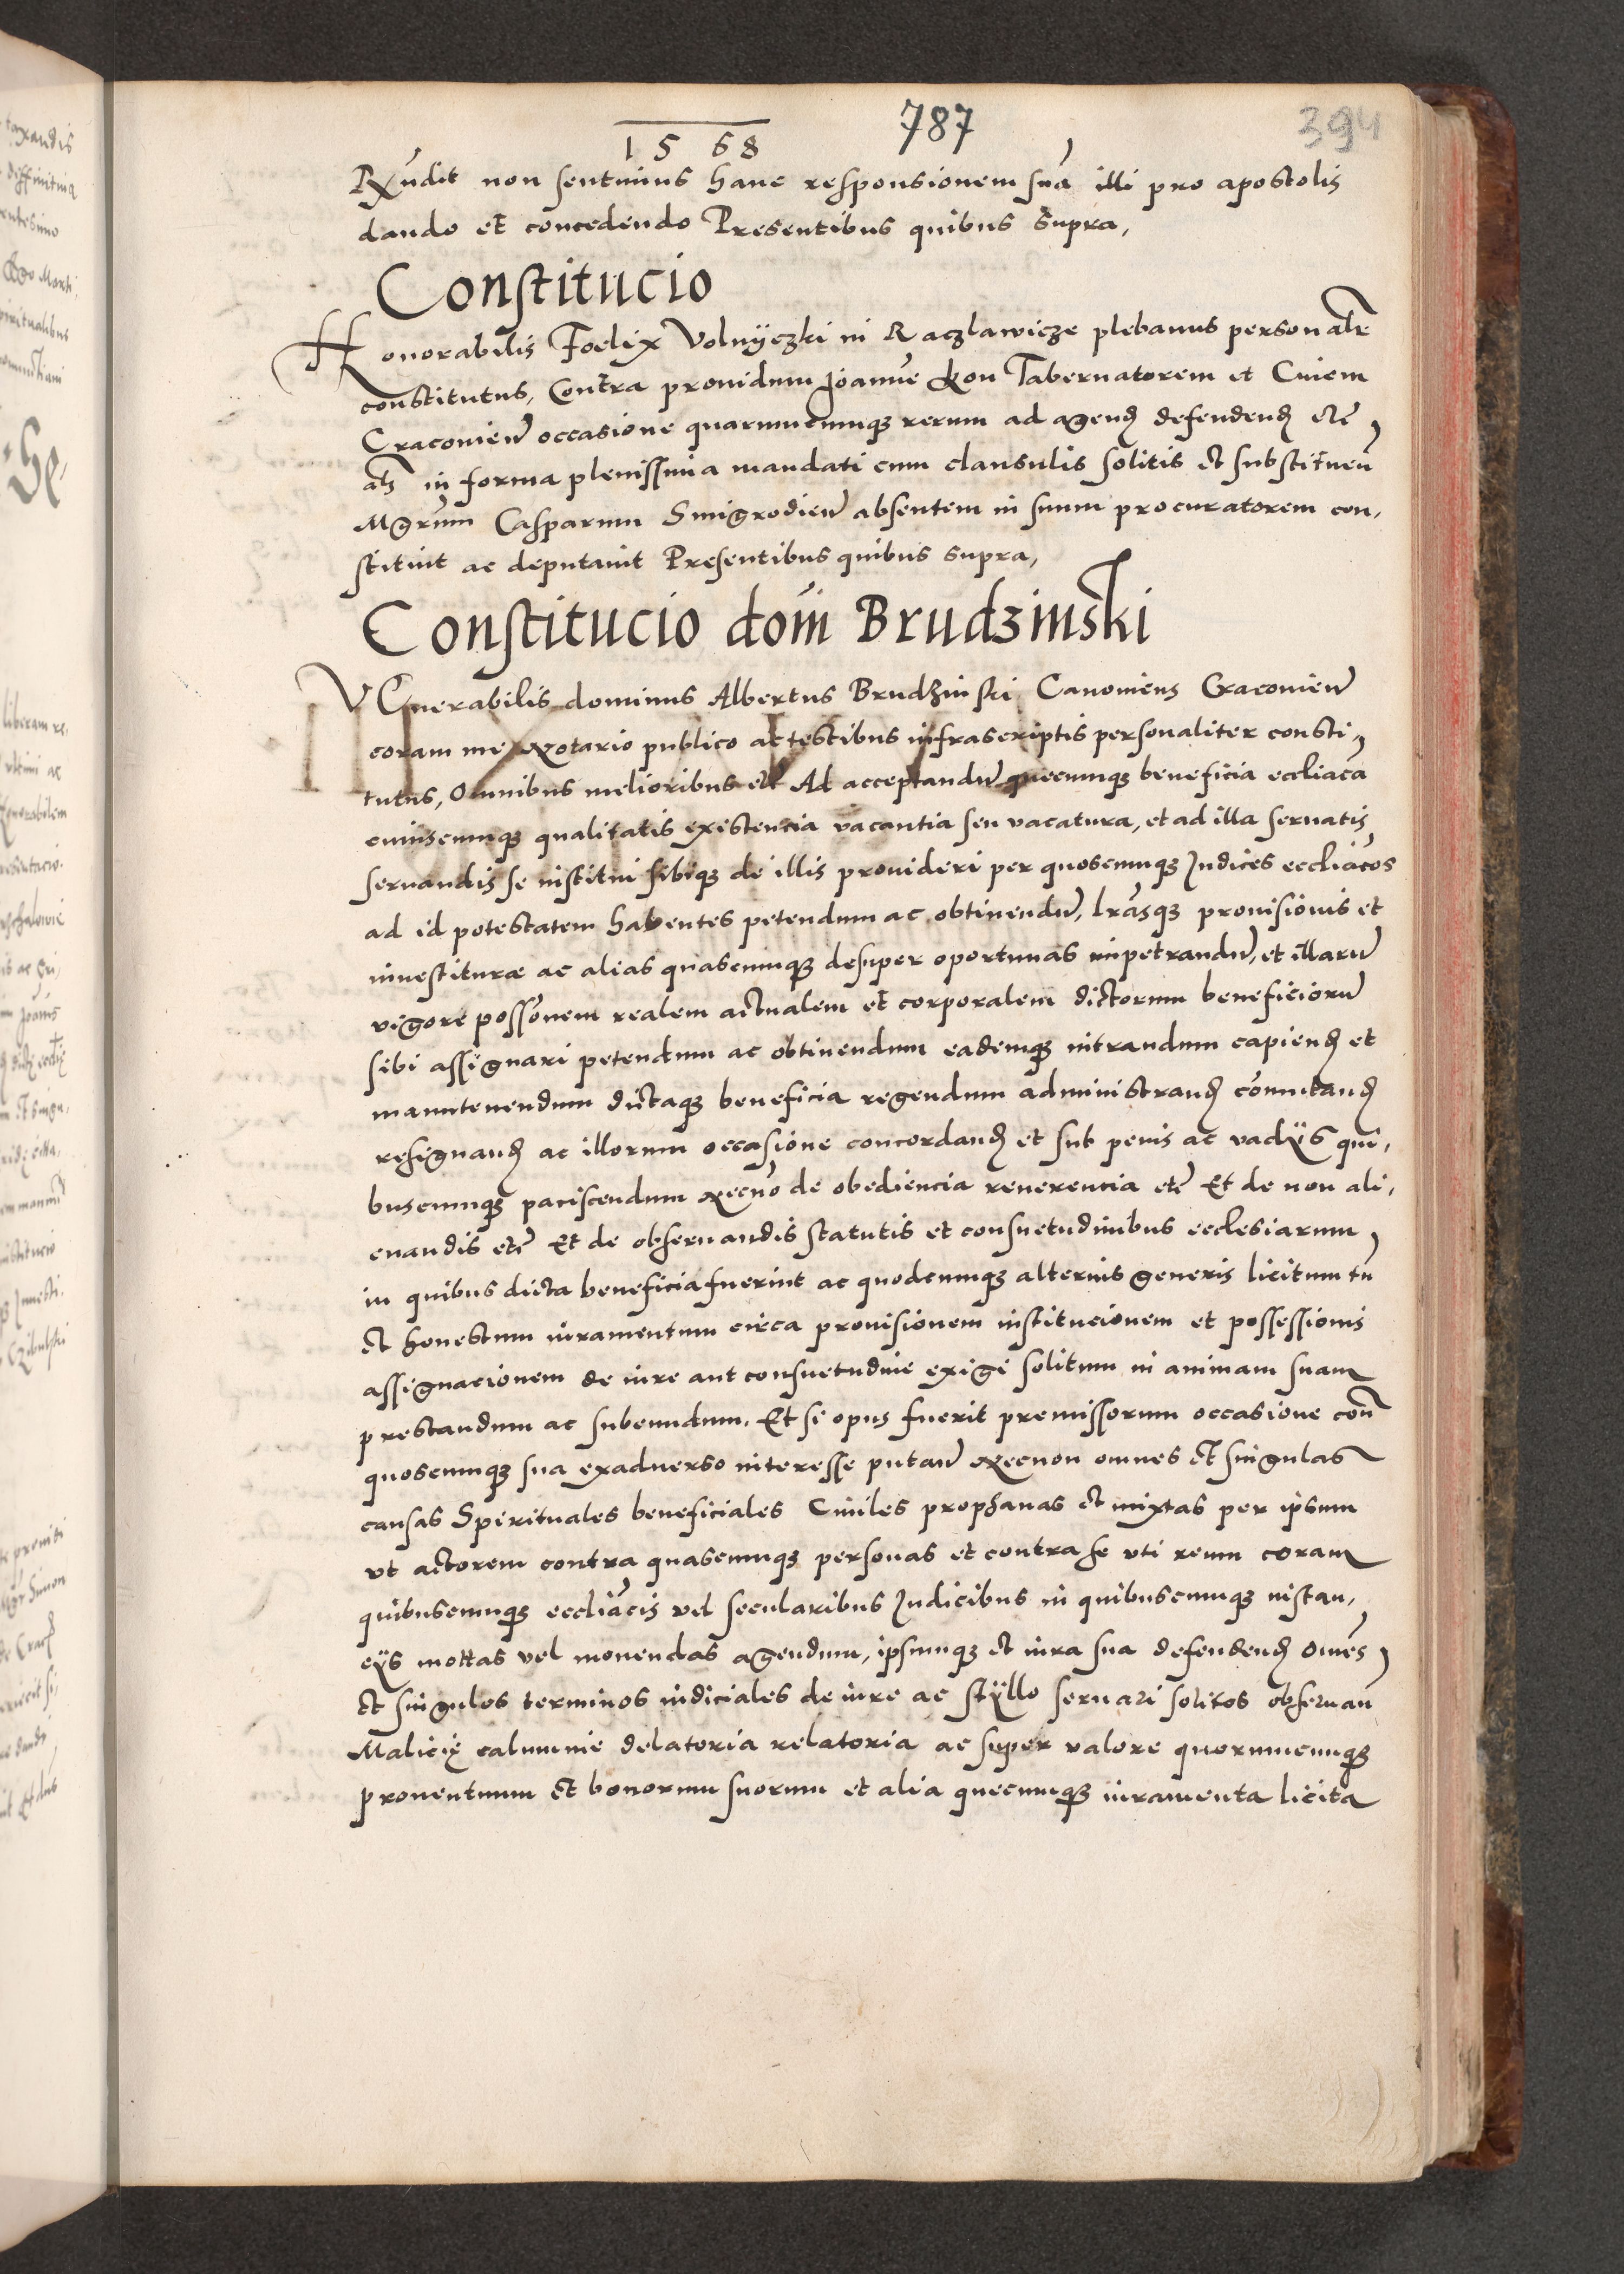 787
394
1568
Rñdit non sentimus hanc responsionem suā illi pro apostolis
dando et concedendo Presentibus quibus supra,
Constitucio
Honorabilis Foelix Volnÿczki in Raczlawicze plebanus personalr̃
constitutus, Contra prouidum Joannē Kon Tabernatorem et Ciuem
Cracouień occasione quarumcumqʒ rerum ad agenđ defendenđ etc̃
als in forma plenissima mandati cum clausulis solitis et substitueñ
Mgrūm Casparum Smigrodień absentem in suum procuratorem con,
stituit ac deputauit Presentibus quibus supra,
Constitucio doḿi Brudzinski
VEnerabilis dominus Albertus Brudzinski Canonicus Cracouień
coram me Notario publico ac testibus infrascriptis personaliter consti,
tutus, Omnibus melioribus etc̃ Ad acceptandū quecumqʒ beneficia eccliāca
cuiuscumqʒ qualitatis existencia vacantia seu vacatura, et ad illa seruatis
seruandis se institui sibiqʒ de illis prouideri per quoscumqʒ Judices eccliācos
ad id potestatem habentes petendum ac obtinendū, lrāsqʒ prouisionis et
inuestituræ ac alias quascumqʒ desuper oportunas impetrandū, et illarū
vigore possōnem realem actualem et corporalem dictorum beneficiorū
sibi assignari petendum ac obtinendum eademqʒ intrandum capienđ et
manutenendum dictaqʒ beneficia regendum administranđ cōmutanđ
resignanđ ac illorum occasione concordanđ et sub penis ac vadÿs qui,
buscumqʒ paciscendum Necnō de obediencia reuerencia etc̃ Et de non ali,
enandis etc̃ Et de obseruandis statutis et consuetudinibus ecclesiarum
in quibus dicta beneficia fuerint ac quodcumqʒ alterius generis licitum tn̄
et honestum iuramentum circa prouisionem institucionem et possessionis
assignacionem de iure aut consuetudine exigi solitum in animam suam
prestandum ac subeundum. Et si opus fuerit premissorum occasione con̄
quoscumqʒ sua exaduerso interesse putań Necnon omnes et singulas
causas Spirituales beneficiales Ciuiles prophanas et mixtas per ipsum
vt actorem contra quascumqʒ personas et contra se vti reum coram
quibuscumqʒ eccliācis vel secularibus Judicibus in quibuscumqʒ instan,
cÿs mottas vel mouendas agendum, ipsumqʒ et iura sua defendenđ omēs
et singulos terminos iudiciales de iure ac stÿllo seruari solitos obseruañ
Malicię calumnie delatoria relatoria ac super valore quorumcumqʒ
prouentuum et bonorum suorum et alia quecumqʒ iuramenta licita